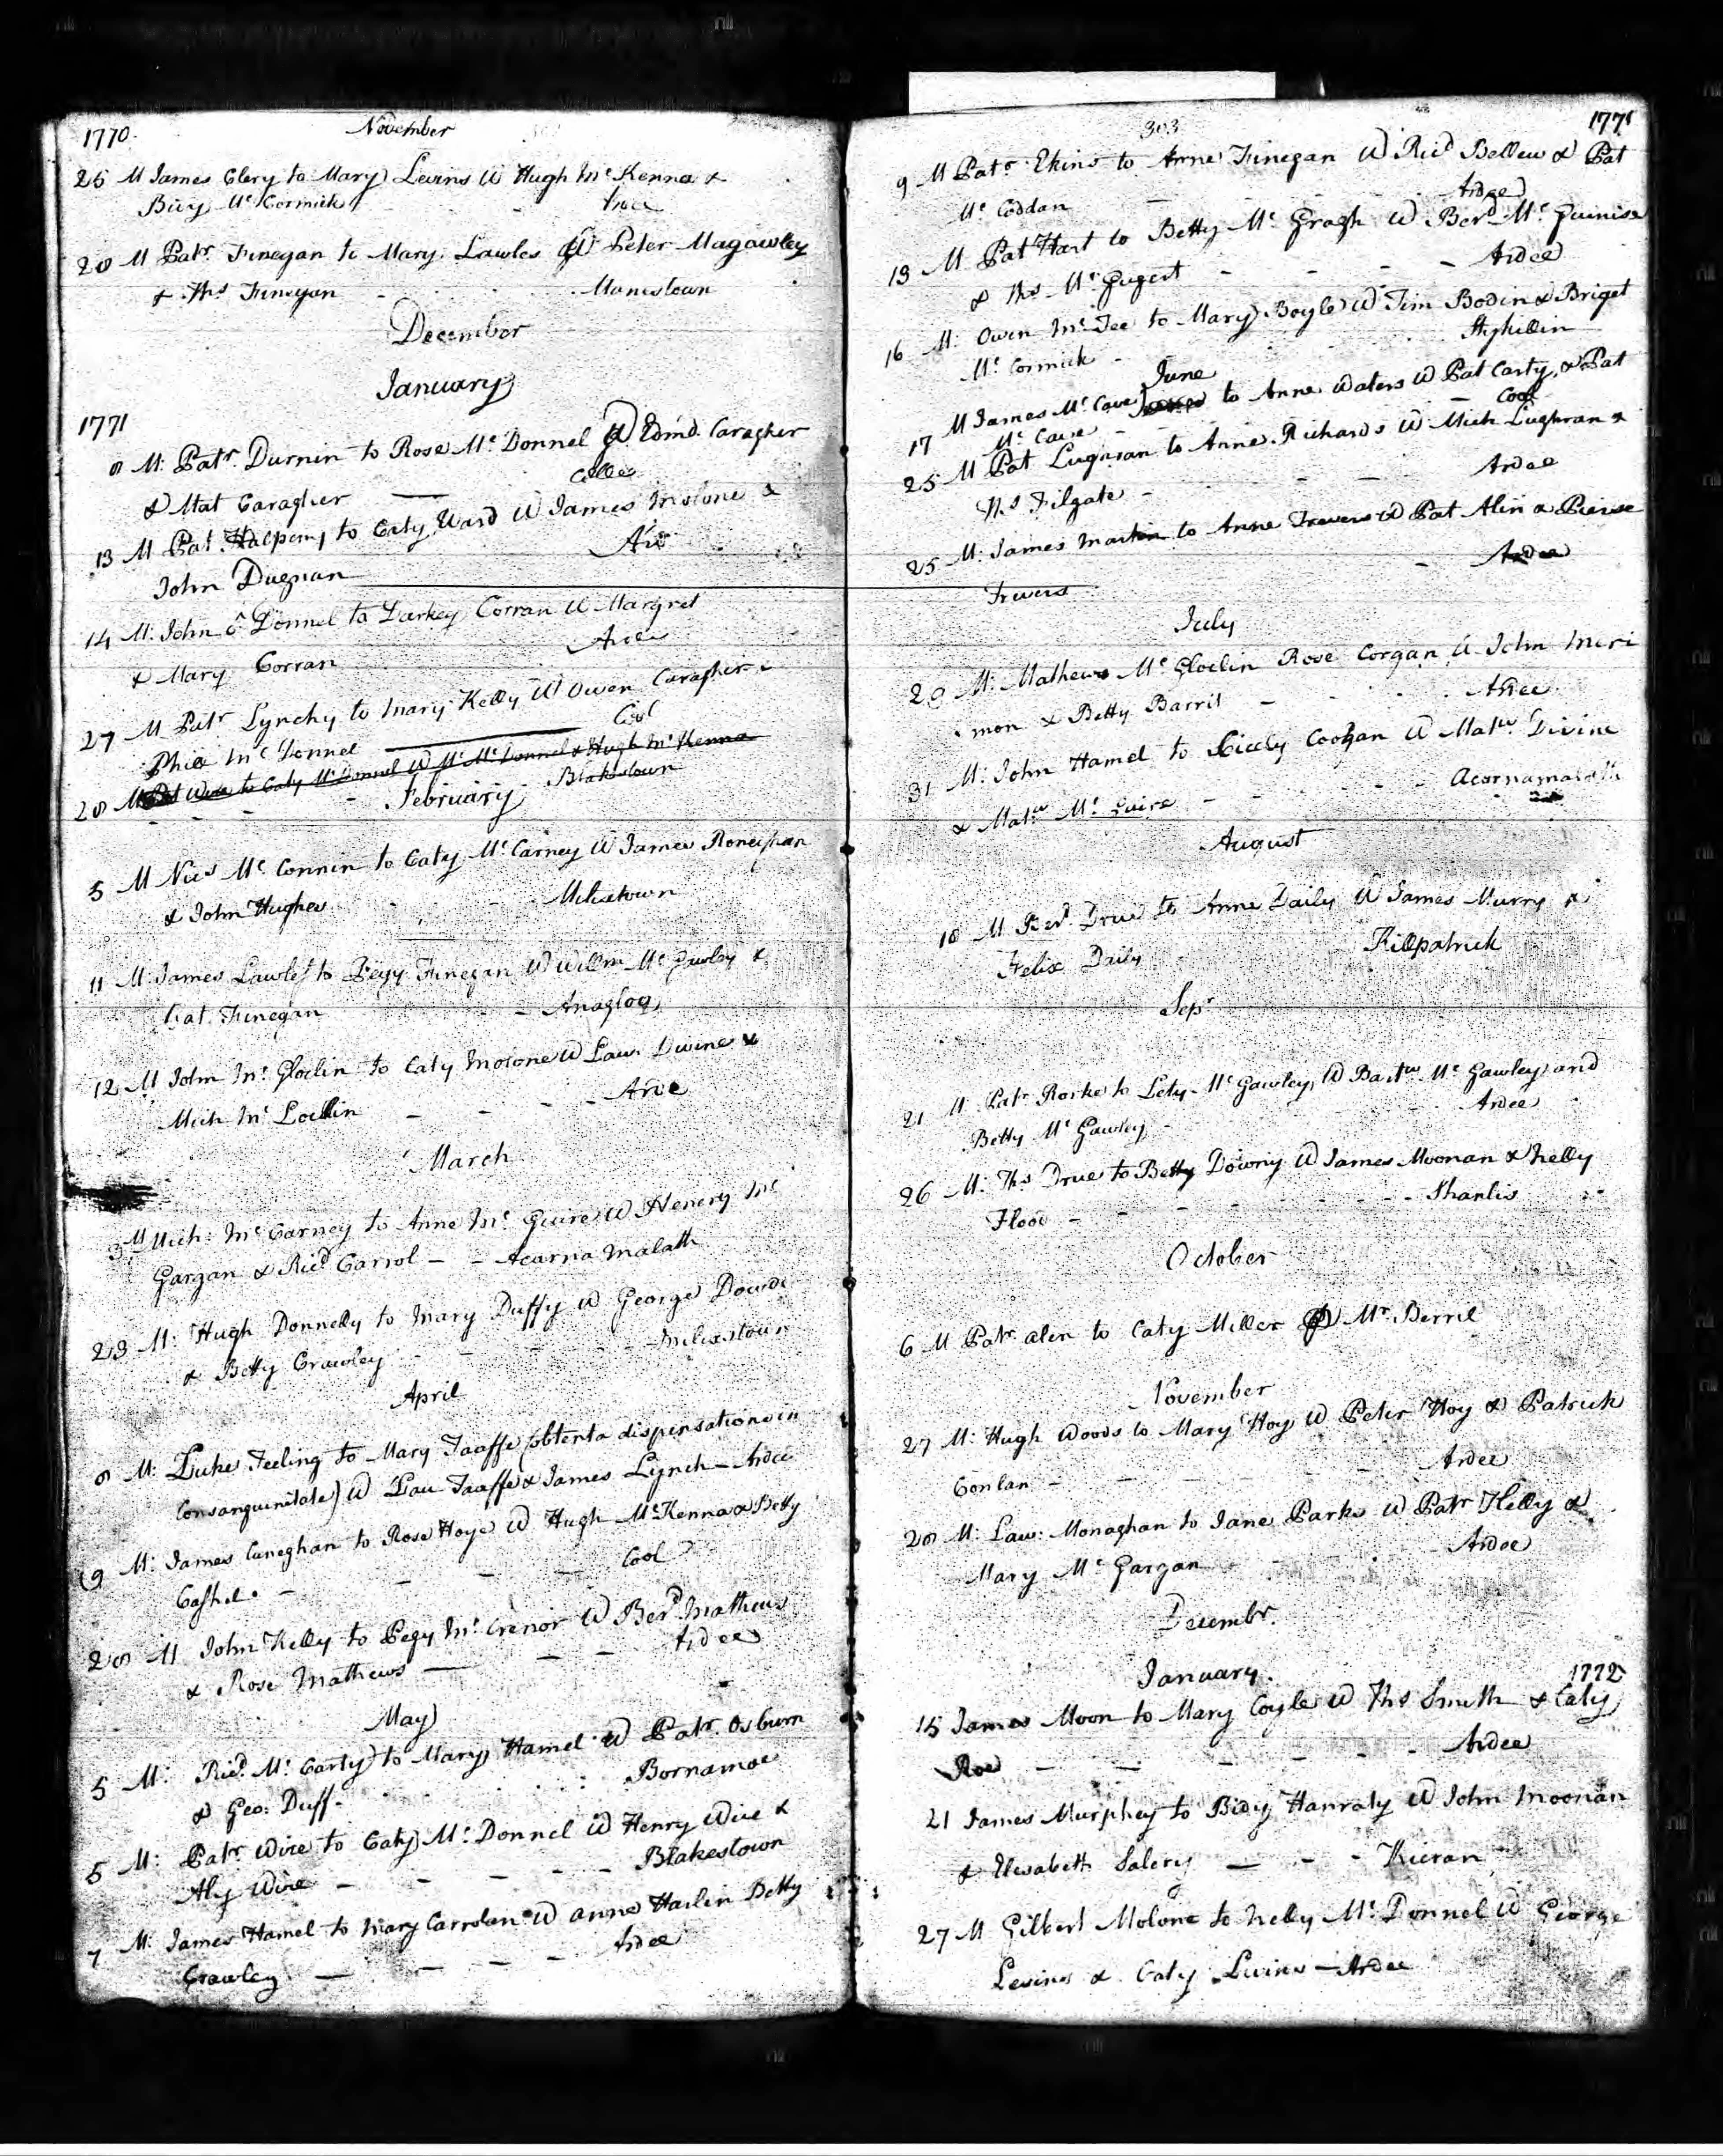 1770 November
25 M James Clery to Mary Levins W Hugh Mc Kenna &
Bidy Mc Cormick - Ardee
28 M Patr. Finegan to Mary Lawles W Peter Magawley
& Ths Finegan - Manestown
December
January
1771
8 M: Patr. Durnin to Rose Mc Donnel W Edmd. Caragher
& Mat Caragher — Collee
13 M Pat Halpeny to Caty Ward W James Molone &
John Dugnan Ar
14 M: John ô Donnel to Darkey Corran W Margret
& Mary Corran Ardee
27 M Patr Lynchy to Mary Kelly W Owen Caragher &
Phil Mc Donnel — Cool
28 M Pat Wire to Caty Mc Donnel W Mc Donnel & Hugh Mc Kenna
- - - Blakestown
February
5 M Nics Mc Connin to Caty Mc Carney W James Roneghan
& John Hughes - Milestown
11 M: James Lawless to Pegy Finegan W Willm Mc Gawley &
Pat. Finegan - Anaglog
12 M John Mc Gloclin to Caty Molone W Law. Divine &
Mich Mc Loclin - - - Ardee
March
3 M Mich: Mc Carney to Anne Mc Guire W Henery Mc
Gargan & Ricd Carrol - - Acarna Malath
23 M: Hugh Donnelly to Mary Duffy W George Dowde
& Betty Crawley - - - Milestown
April
8 M: Luke Teeling to Mary Taaffe (obtenta dispensatione in
Consanguinitate) W Lau Taaffe & James Lynch - Ardee
9 M: James Cuneghan to Rose Hoye W Hugh Mc Kenna & Betty
Cashel. - - - Cool
28 M John Kelly to Pegy Mc Crenor W Berd Mathews
& Rose Mathews — - - Ardee
May
5 M: Ricd. Mc Carty to Mary Hamel W Patr. Osburn
& Geo: Duff - Bornamoe
5 M: Patr. Wire to Caty Mc Donnel W Henry Wire &
Aly Wire - - - - Blakestown
7 M: James Hamel to Mary Carrolan W Anne Harlin Betty
Crawley — - - - Ardee
303 1771
9 M Patr. Ekins to Anne Finegan W Ricd Bellew & Pat
Mc Coddan - - Ardee
13 M Pat Hart to Betty Mc Gragh W Berd Mc Guinise
& Ths Mc Gugert - - - - Ardee
16 M: Owen Mc Tee to Mary Boyle W Tim Bodin & Briget
Mc Cormick - Hyhillin
June
17 M James Mc Cave to Anne Waters W Pat Carty & Pat
Mc Cave - - - Cool
25 M Pat Lughran to Anne Richards W Mich Lughran &
Ths Filgate - - - Ardee
25 M: James Martin to Anne Trevers W Pat Alin & Pierse
Trevers - Ardee
July
28 M: Mathew Mc Gloclin Rose Corgan W John Meri
mon & Betty Barrit - - - Ardee
31 M: John Hamel to Cicely Coogan W Matw Divine
& Matw Mc Guire - - - Acarnamalath
August
18 M Berd. Drue to Anne Daily W James Murry &
Felix Daily Kilpatrick
Sepr
21 M Patr Rorke to Lety Mc Gawley W Bartw Mc Gawley and
Betty Mc Gawley - Ardee
26 M: Ths Drue to Betty Downy W James Moonan & Nelly
Flood - - - - Shanlis
October
6 M Patr Alen to Caty Miller W Mr. Berril
November
27 M: Hugh Woods to Mary Hoy W Peter Hoy & Patrick
Conlan - - - - Ardee
28 M: Law: Monaghan to Jane Parks W Patr Kelly &
Mary Mc Gargan - - Ardee
Decembr.
January. 1772
15 James Moon to Mary Coyle W Ths Smith & Caty
Roe - - - - - Ardee
21 James Murphey to Bidy Hanraty W John Moonan
& Elisabeth Salery - - - Kieran
27 M Gilbert Molone to Nelly Mc Donnel W George
Levins & Caty Levins - Ardee